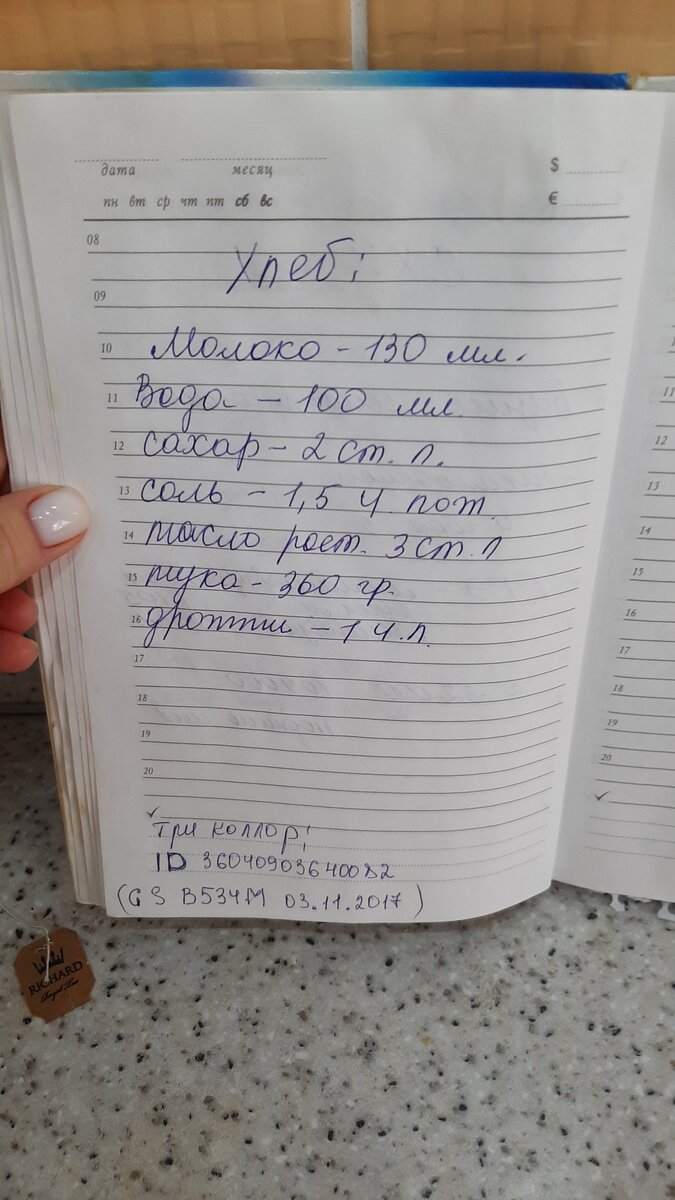 дата месяц $
пн вт ср чт пт сб вс €
08
Хлеб:
09
10 Молоко - 130 мл.
11 Вода - 100 мл.
12 сахар - 2 ст. л.
13 соль - 1,5 ч. лож.
14 масло раст. 3 ст. л
15 мука - 360 гр.
16 дрожжи - 1 ч.л.
17
18
19
20
Три коллор;
ID 36040903640082
(GS B534M 03.11.2017)
RICHARD
Royal Tea
11
12
13
14
15
16
17
18
19
20